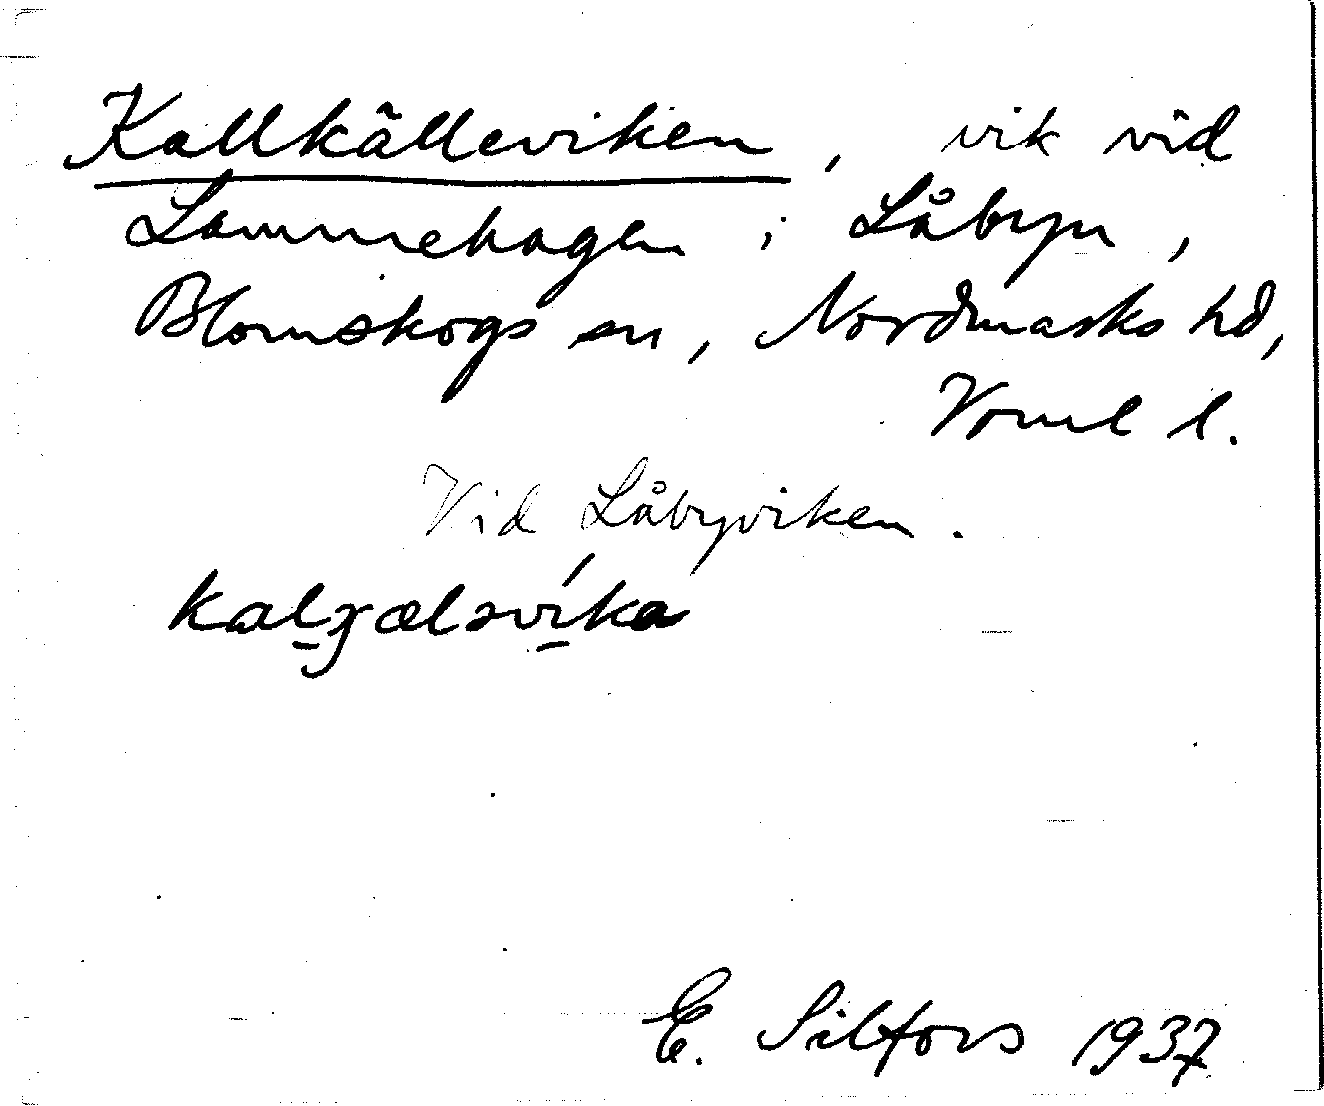 Kallkälleviken, vik vid
Lammehagen i Låbyn,
Blomskogs sn, Nordmarks hd,
Vrml l.
Vid Låbyviken.
E. Silfors 1937